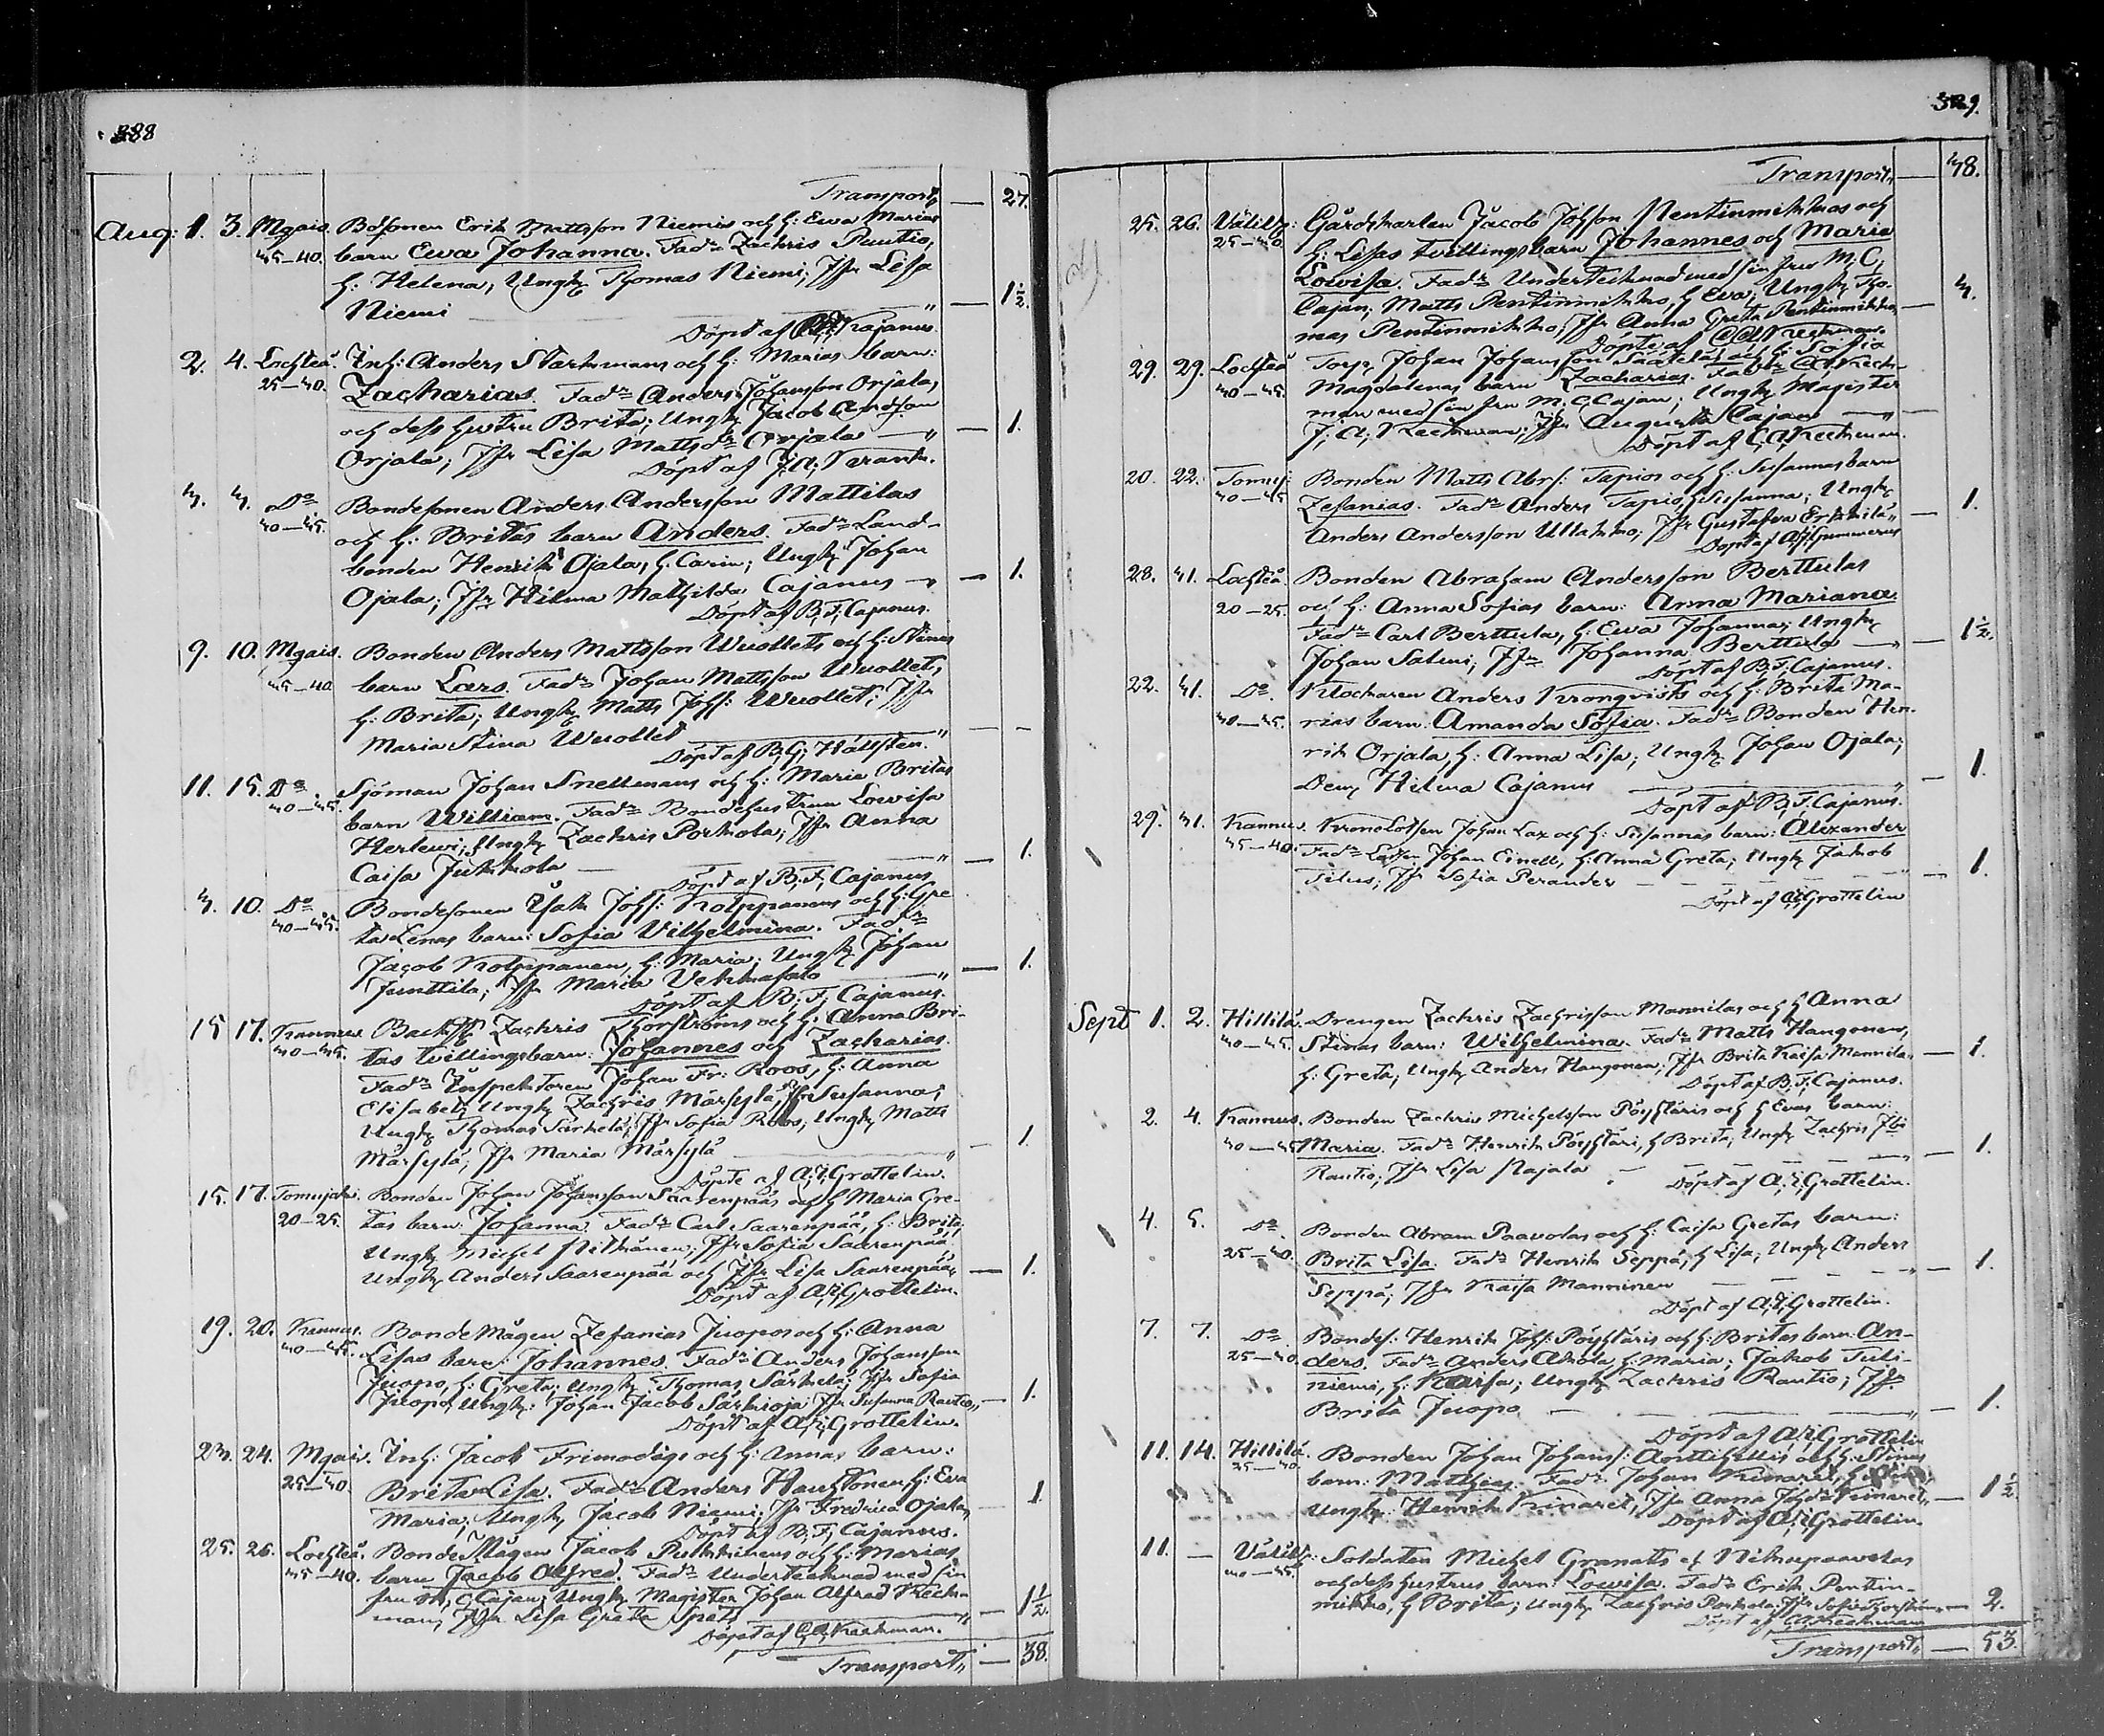 388
Transport — 27.
Aug: 1. 3. Mgais. Bdsonen Erik Mattsson Niemis och h: Ewa Marias
35–40. barn Ewa Johanna. Faddr Zachris Puntio,
h: Helena, Ungk Thomas Niemi; Jfr Lisa
Niemi — 1½
Döpt af Kajanus.
2. 4. Lochteå. Inh: Anders Starkmans och h: Marias barn:
25–30. Zacharias. Faddr Anders Johansson Orjala,
och dess hustru Brita; Ungk Jacob Andsson
Orjala; Jfr Lisa Mattsdr Orjala — 1.
Döpt af J. A. Krank.
3. 4. Do Bondesonen Anders Andersson Mattilas
40–45. och h: Britas barn Anders. Faddr Land-
bonden Henrik Ojala, h. Carin; Ungk Johan
Ojala; Jfr Hilma Mathilda Cajanus — 1.
Döpt af B. F. Cajanus.
9. 10. Mgais. Bonden Anders Mattsson Wuollets och h: Stinas
35–40. barn Lars. Faddr Johan Mattsson Wuollet,
h: Brita; Ungk Matts Johs: Wuollet; Jfr
Maria Stina Wuollet —
Döpt af B. G. Hällsten.
11. 15. Do. Sjöman Johan Snellmans och h: Maria Britas
40–45. barn William. Faddr Bondehustrun Lowisa
Herlewi; Ungk Zachris Porkola; Jfr Anna
Caisa Jukkola — 1.
Döpt af B. F. Cajanus
3. 10. Do Bondesonen Isak Johs: Kolppanens och h: Gre
40–45. ta Lenas barn: Sofia Vilhelmina. Faddr
Jacob Kolppanen, h: Maria; Ungk Johan
Junttila; Jfr Maria Vehkasalo — 1.
Döpt af B. F. Cajanus.
15 17. Kannus Zachris Thorströms och h: Anna Bri-
40–45. tas tvillingsbarn: Johannes och Zacharias.
Faddr Inspektoren Johan Fr: Roos, h: Anna
Elisabet; Ungk Zachris Märsylä, h: Susanna;
Ungk Thomas Särkelä; Jfr Sofia Roos, Ungk Matts
Märsylä; Jfr Maria Märsylä — 1.
Döpte af A. F. Grottelin.
15. 17. Tomujoki. Bonden Johan Johansson Saarenpääs och h Maria Gre-
20–25. tas barn: Johanna. Faddr Carl Saarenpää, h: Brita;
Ungk Michel Pitkänen; Jfr Sofia Saarenpää;
Ungk Anders Saarenpää och Jfr Lisa Saarenpää — 1.
Döpt af A. F. Grottelin.
19. 20. Kannus. Bondemågen Zefanias Juopos och h: Anna
40–45. Lisas barn: Johannes. Faddr Anders Johansson
Juopo, h: Greta; Ungk Thomas Särkelä; Jfr Sofia
Juopo, Ungk: Johan Jacob Särkioja Jfr Susanna Rautio — 1.
Döpt af A. F. Grottelin.
23. 24. Mgais. Inh: Jacob Frimodigs och h: Annas barn:
25–30. Brita Lisa. Faddr Anders Hauhtonen, h: Eva
Maria; Ungk Jacob Niemi; Jfr Fredrica Ojala — 1
Döpt af B. F. Cajanus.
25. 26. Lochteå. Bonde Mågen Jacob Pukkinens och h: Marias
35–40. barn Jacob Alfred. Faddr Undertecknad med sin
fru M. C. Cajan; Ungk Magister Johan Alfred Keck-
man, Jfr Lisa Greta Spets — 1½
Döpt af C. A. Keckman.
Transport — 38.
389.
Transport — 38.
25. 26. Välikp: Gårdskarlen Jacob Johsson Pentinmikkos och
25–30 h: Lisas tvillingsbarn Johannes och Maria
Lowisa. Faddr Undertecknad med sin fru M. C.
Cajan; Matts Pentinmikko, h Eva; Ungk Tho-
mas Pentinmikko; Jfr Anna Greta Pentinmikko — 3.
Döpte af C. A. Keckman.
29. 29. Lochteå Torp. Johan Johansson Sääteläs och h: Sofia
40–45. Magdalenas barn Zacharias. Faddr C A Keck-
man med sin fru M. C. Cajan; Ungk Magister
J. A. Keckman; Jfr Augusta Cajan —
Döpt af C. A. Keckman.
20. 22. Tomuj: Bonden Matts Abrs: Tapios och h: Susannas barn
40–45 Zefanias. Faddr Anders Tapio, h: Susanna; Ungk
Anders Andersson Ullakko; Jfr Gustafva Erkkilä — 1.
Döpt af Gummerus
28. 31. Lochteå. Bonden Abraham Andersson Berttulas
20–25. och h: Anna Sofias barn: Anna Mariana.
Faddr Carl Berttula, h: Ewa Johanna; Ungk
Johan Salmi; Jfr Johanna Berttula — 1½.
Döpt af B. F. Cajanus.
22. 31. Do. Klockaren Anders Kronqvists och h: Brita Ma-
40–45. rias barn. Amanda Sofia. Faddr Bonden Hen-
rik Orjala, h: Anna Lisa; Ungk Johan Ojala;
Dem Hilma Cajanus — 1.
Döpt af B. F. Cajanus.
29. 31. Kannus. Kronolotsen Johan Lax och h: Susannas barn: Alexander
35–40. Faddr Lotsen Johan Einell, h: Anna Greta; Ungk Jakob
Tilus; Jfr Sofia Perander — 1.
Döpt af A. F. Grottelin
Sept 1. 2. Hillilä. Drengen Zachris Zachrisson Mannilas och h Anna
40–45. Stinas barn: Wilhelmina. Faddr Matts Haugonen,
h: Greta; Ungk Anders Haugonen; Jfr Brita Kaisa Mannila — 1.
Döpt af B. F. Cajanus.
2. 4. Kannus. Bonden Zachris Michelsson Pöyhtäris och h Evas barn:
40–45 Maria. Faddr Henrik Pöyhtäri, h Brita; Ungk Zachris
Rautio; Jfr Lisa Rajala — 1.
Döpt af A. F. Grottelin.
4. 5. Do. Bonden Abram Paavolas och h: Caisa Gretas barn:
25–30. Brita Lisa. Faddr Henrik Seppä, h Lisa; Ungk Anders
Seppä; Jfr Kaisa Manninen — 1.
Döpt af A. F. Grottelin.
7. 7. Do Bondes: Henrik Johs: Pöyhtäris och h: Britas barn: An-
25–30. ders. Faddr Anders Ahola, h: Maria; Jakob Tuli-
niemi, h: Kaisa; Ungk Zachris Rautio; Jfr
Brita Juopo — 1.
Döpt af A. F. Grottelin
11. 14. Hillilä. Bonden Johan Johanss: Anttihellis och h: Stinas
25–30. barn: Matthias. Faddr Johan Kinaret,
Ungk: Henrik Kinaret, Jfr Anna Johdr Kinaret — 1½
Döpt af A. F. Grottelin.
11. — Välikp: Soldaten Michel Granats och
40–45. och dess hustrus barn: Lowisa. Faddr Erik Pentin-
mikko, h Brita; Ungk Zachris Porkola; Jfr Sofia Thorström — 2.
Döpt af C A Keckman
Transport — 53.